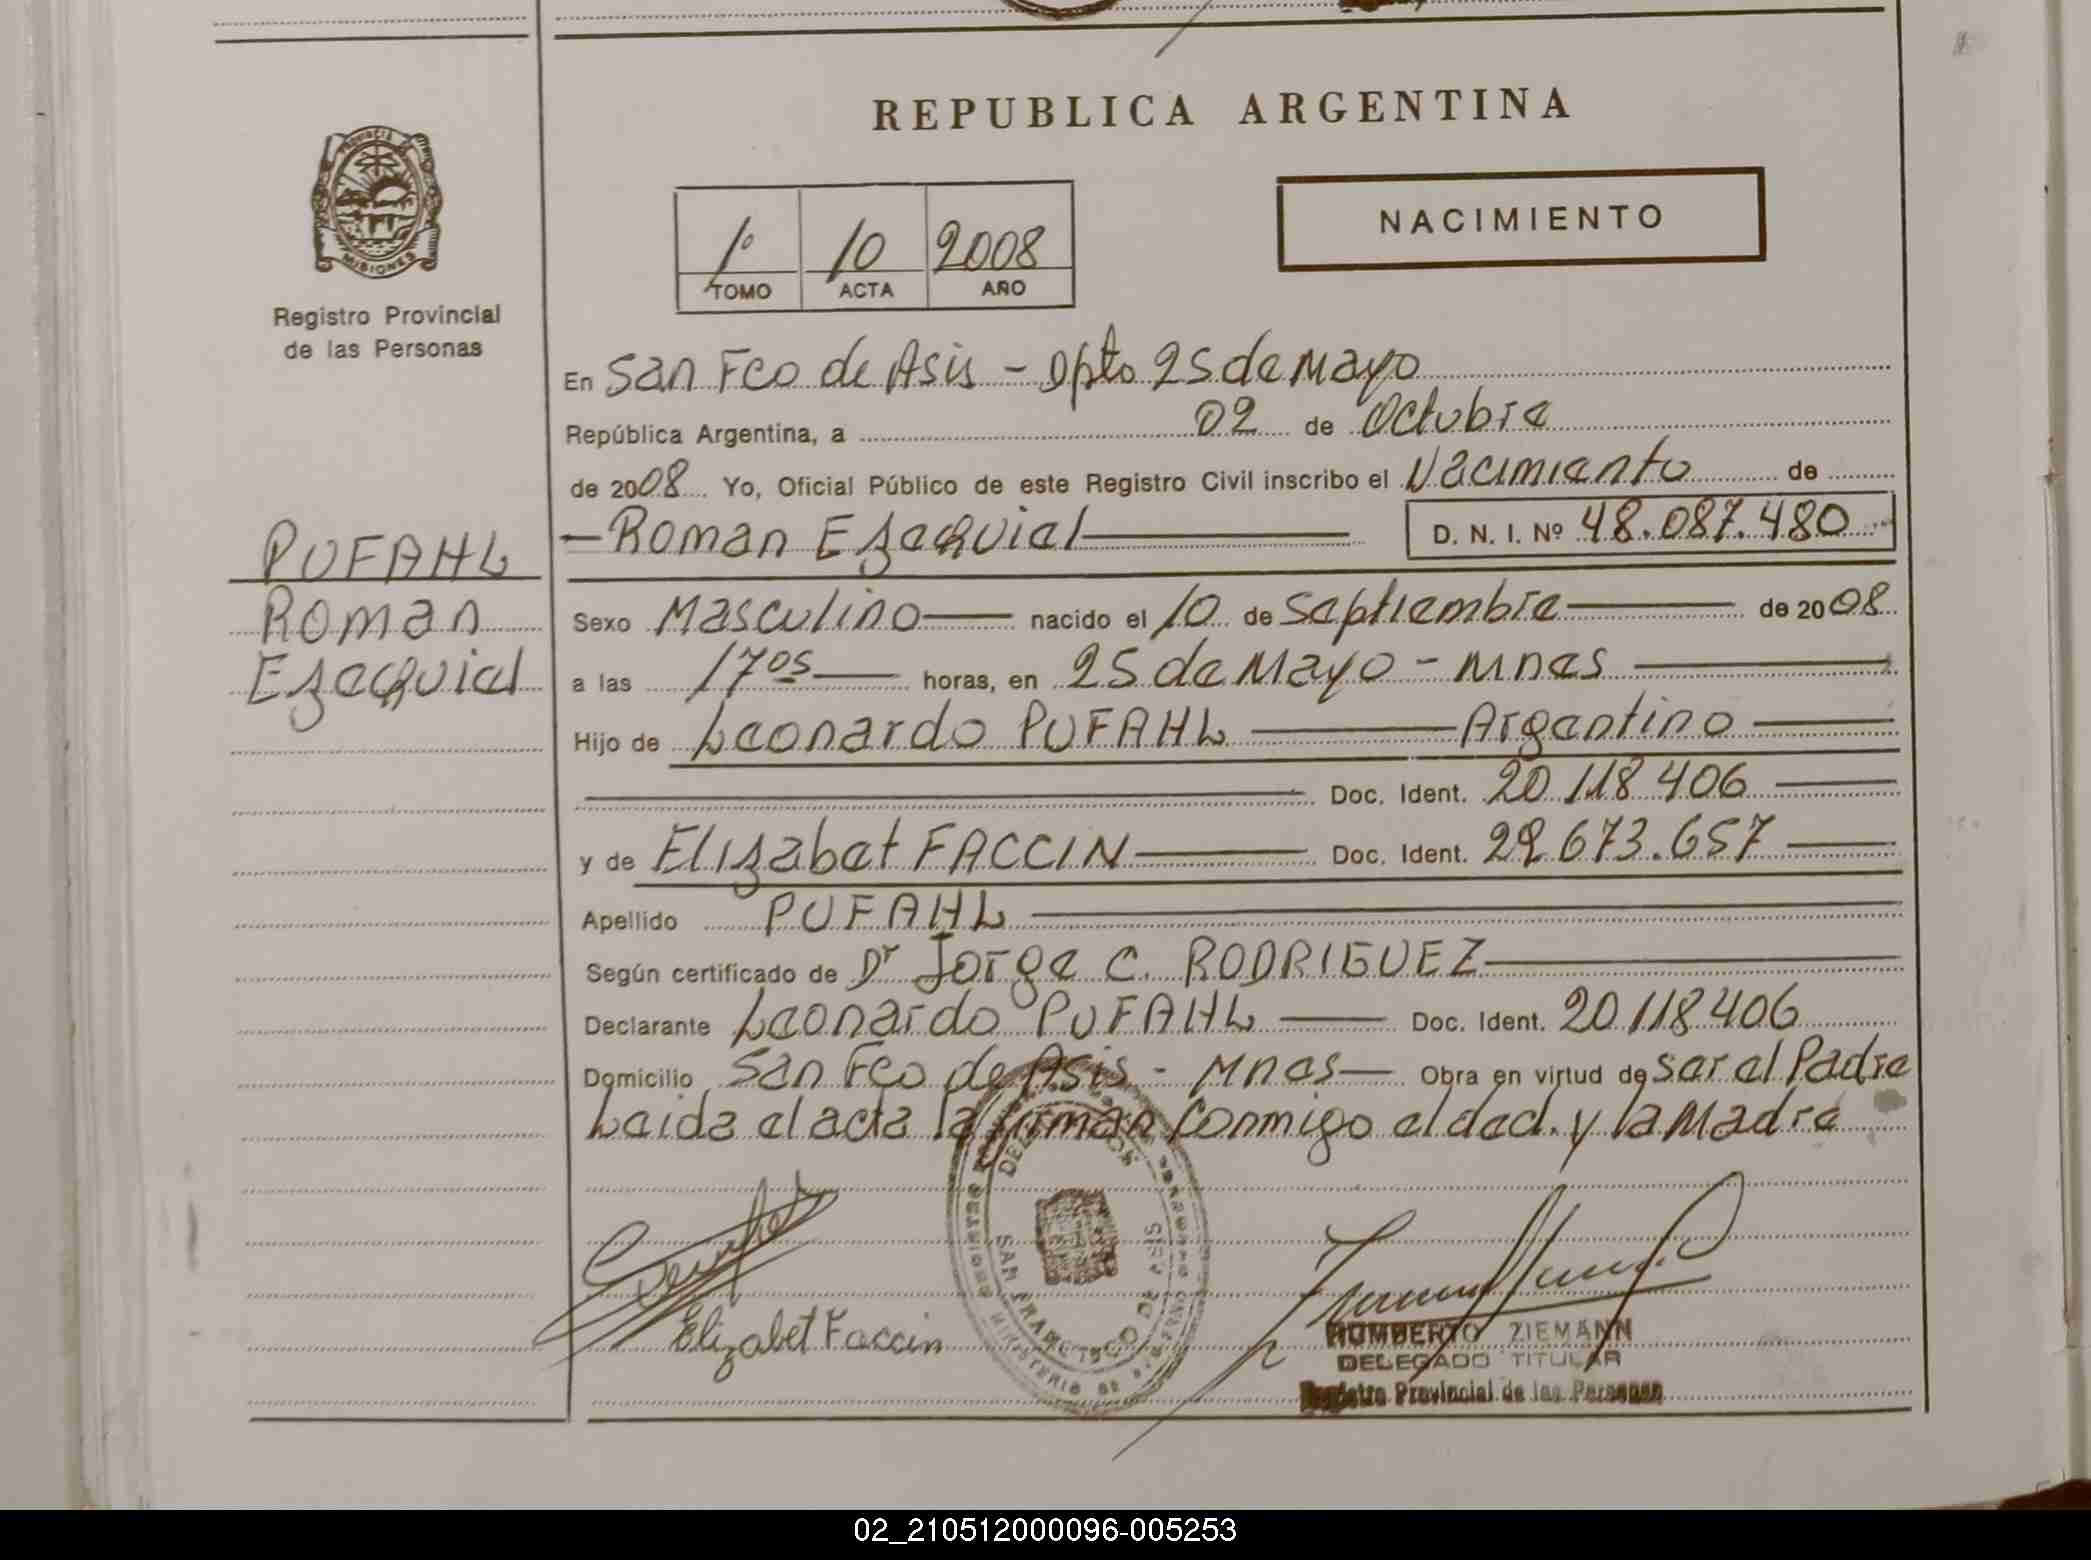 REPUBLICA ARGENTINA
NACIMIENTO
1º 10 2008
TOMO ACTA AÑO
PROVINCIA
MISIONES
Registro Provincial
de las Personas
PUFAHL
Roman
Ezequiel
En San Fco de Asis - Dpto 25 de Mayo
República Argentina, a 02 de Octubre
de 2008 Yo, Oficial Público de este Registro Civil inscribo el Nacimiento de
Roman Ezequiel D. N. I. Nº 48.087.480
Sexo Masculino nacido el 10 de Septiembre de 2008
a las 17 05 horas, en 25 de Mayo - Mnes
Hijo de Leonardo PUFAHL Argentino
Doc. Ident. 20 118 406
y de Elizabet FACCIN Doc. Ident. 29 673.657
Apellido PUFAHL
Según certificado de Dr Jorge C. RODRIGUEZ
Declarante Leonardo PUFAHL Doc. Ident. 20 118 406
Domicilio San Fco de Asis - Mnes Obra en virtud de ser el Padre
Leida el acta la firman conmigo el decl. y la Madre
SAN FRANCISCO DE ASIS
Elizabet Faccin
HUMBERTO ZIEMANN
DELEGADO TITULAR
Registro Provincial de las Personas
02_210512000096-005253